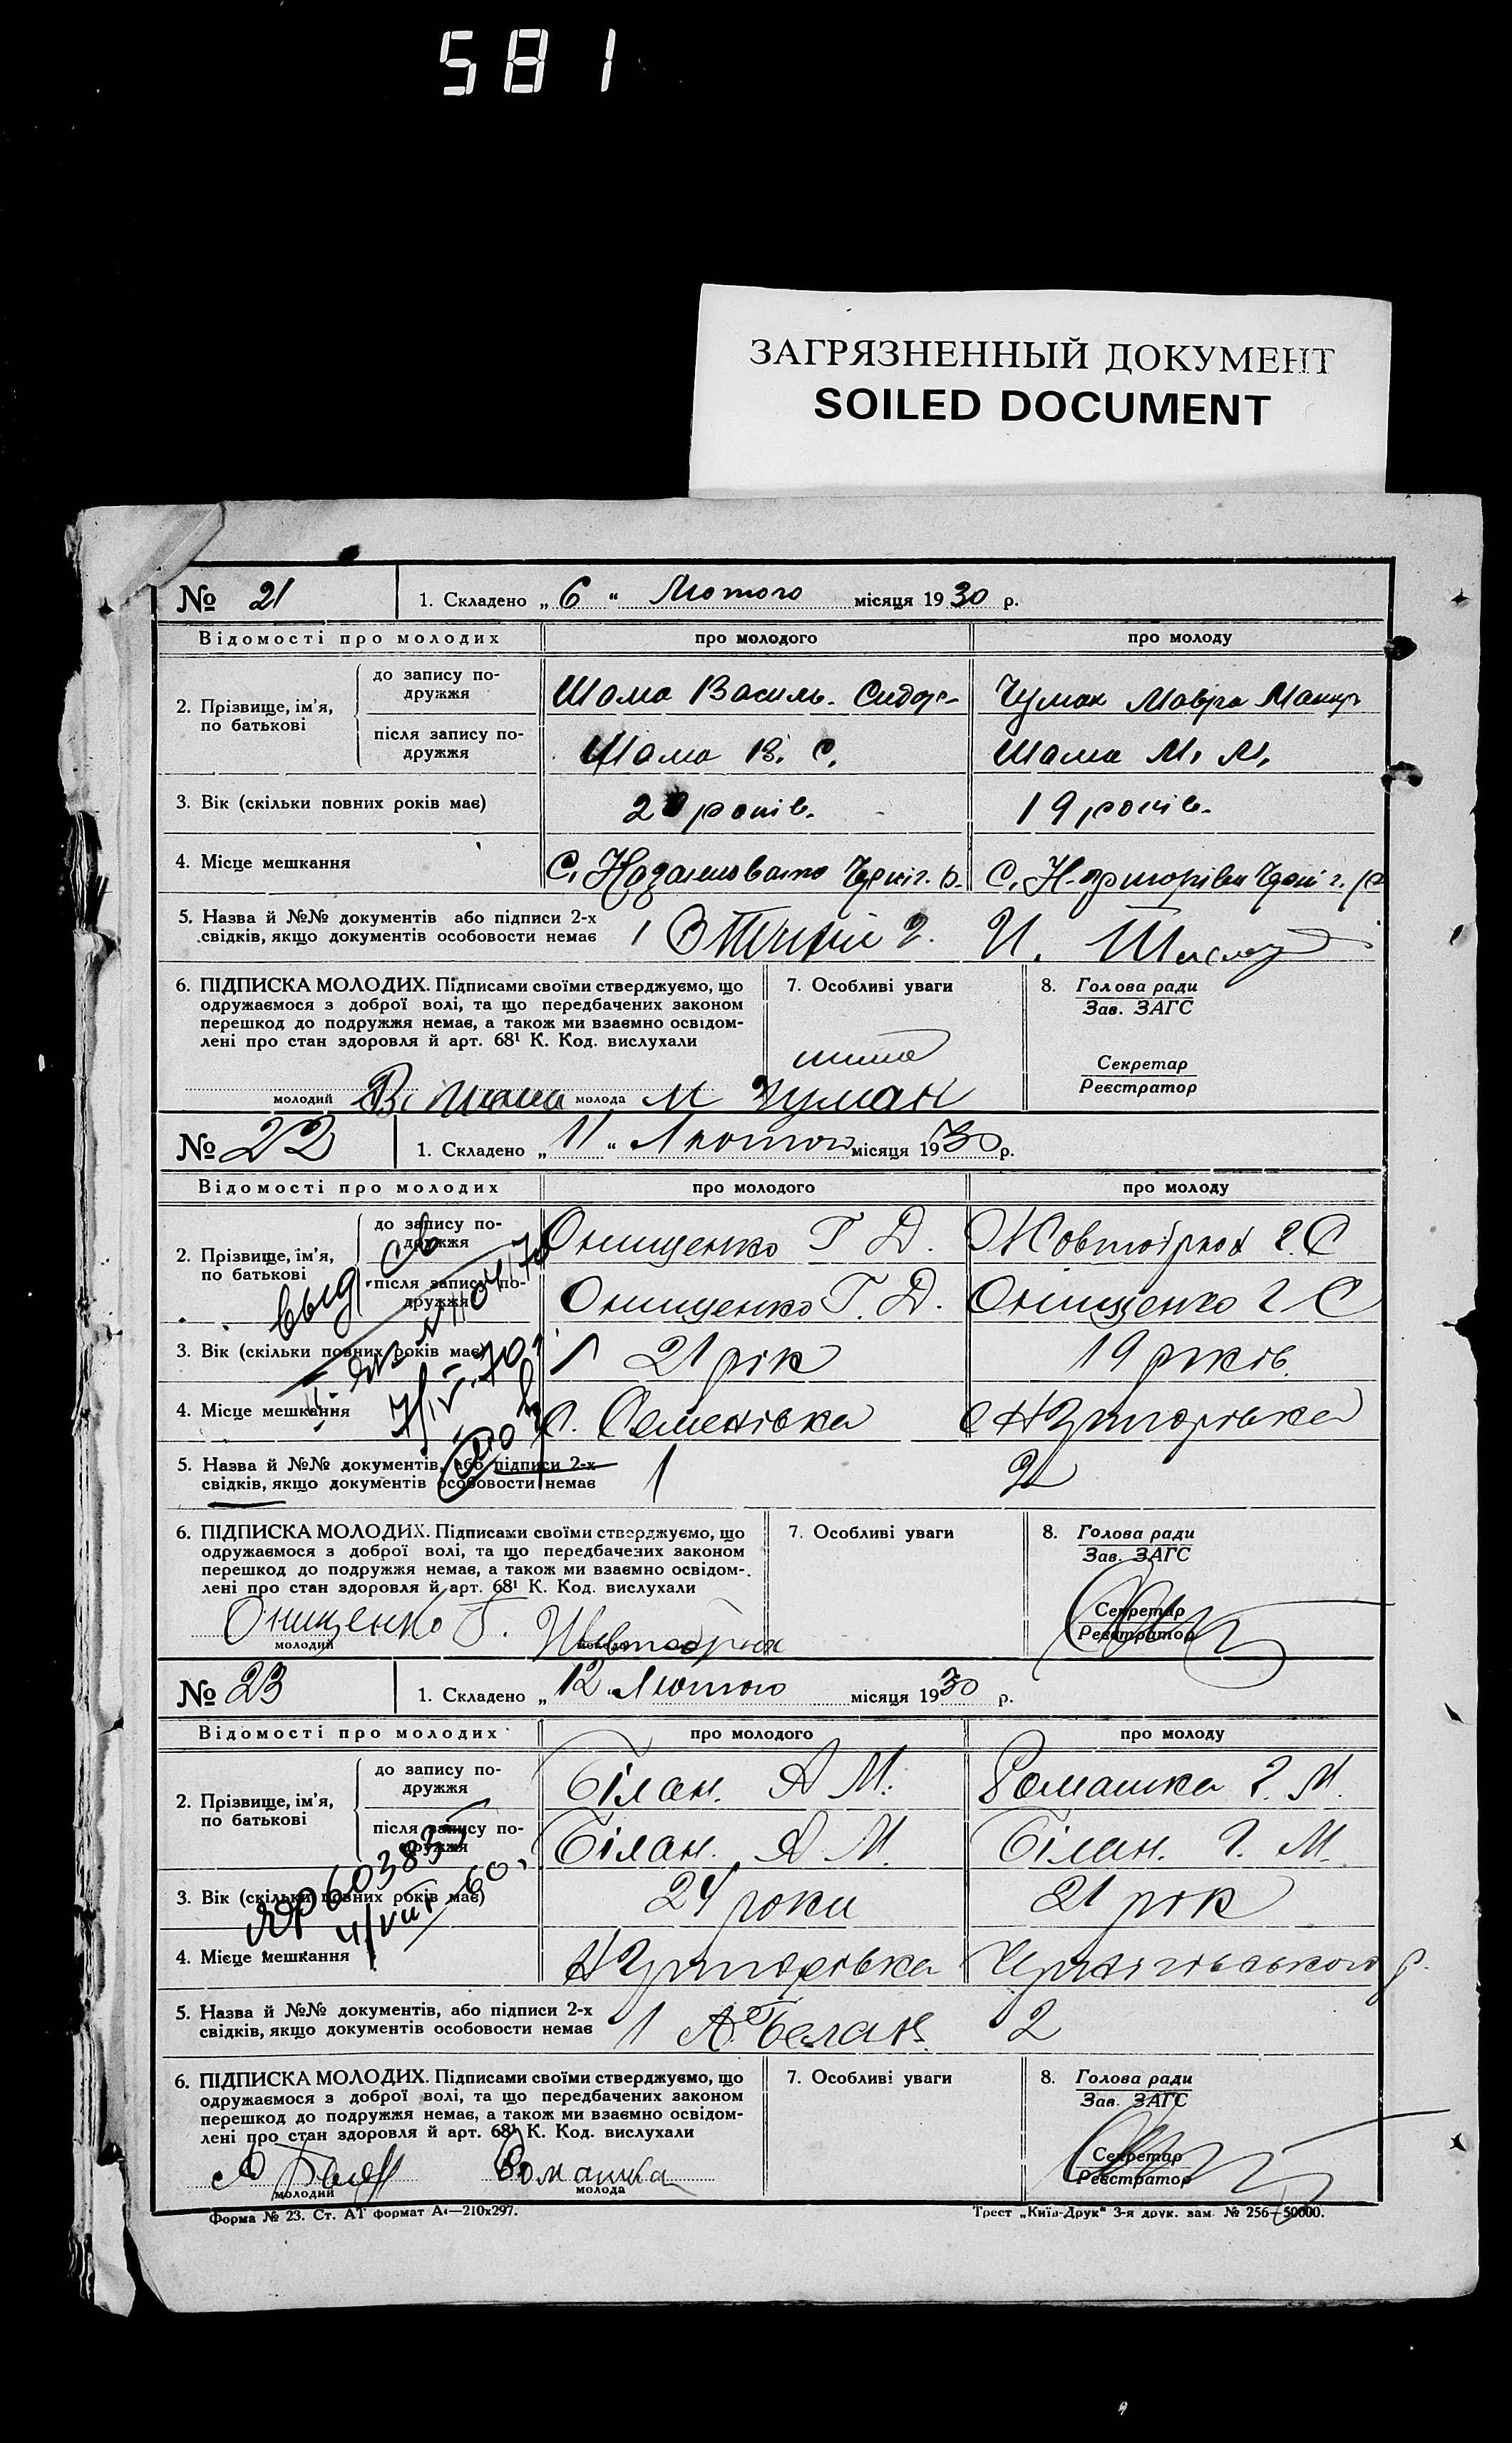 581
ЗАГРЯЗНЕННЫЙ ДОКУМЕНТ
SOILED DOCUMENT
№ 21 1. Складено „ 6 “ Лютого місяця 1930 р.
Відомості про молодих про молодого про молоду
2. Прізвище, ім'я, по батькові
до запису подружжя Шама Василь. Сидор- Чумак Мавра Макар
після запису подружжя Шама В. С. Шама М. М.
3. Вік (скільки повних років має) років. 19 років.
4. Місце мешкання С. С.
5. Назва й №№ документів або підписи 2-х
свідків, якщо документів особовости немає 1 2. И.
6. ПІДПИСКА МОЛОДИХ. Підписами своїми стверджуємо, що 7. Особливі уваги 8. Голова ради
одружаємося з доброї волі, та що передбачених законом Зав. ЗАГС
перешкод до подружжя немає, а також ми взаємно освідом-
лені про стан здоровля й арт. 68¹ К. Код. вислухали Секретар
Реєстратор
молодий В. Шама молода М Чумак
№ 22 1. Складено „ 11 “ Лютого місяця 1930 р.
Відомості про молодих про молодого про молоду
2. Прізвище, ім'я, по батькові
до запису подружжя Онищенко Г Д. Жовтоірнод 2. С
після запису подружжя Онищенко Г. Д. Оніщенко 2 С
выд св
3. Вік (скільки повних років має) 21 рік 19 років.
4. Місце мешкання С. Семенівка Н Григорівка
5. Назва й №№ документів, або підписи 2-х
свідків, якщо документів особовости немає 1 2
6. ПІДПИСКА МОЛОДИХ. Підписами своїми стверджуємо, що 7. Особливі уваги 8. Голова ради
одружаємося з доброї волі, та що передбачених законом Зав. ЗАГС
перешкод до подружжя немає, а також ми взаємно освідом-
лені про стан здоровля й арт. 68¹ К. Код. вислухали Секретар
Онищенко Г. Реєстратор
молодий молода
№ 23 1. Складено „ 12 Лютого місяця 1930 р.
Відомості про молодих про молодого про молоду
2. Прізвище, ім'я, по батькові
до запису подружжя Білан. А М. Ромашка Г. М.
після запису подружжя Білан. А М. Білан. Г. М.
3. Вік (скільки повних років має) 24 роки 21 рок
4. Місце мешкання Н Григорівка Чернігівського р.
5. Назва й №№ документів, або підписи 2-х
свідків, якщо документів особовости немає 1 А Белан 2
6. ПІДПИСКА МОЛОДИХ. Підписами своїми стверджуємо, що 7. Особливі уваги 8. Голова ради
одружаємося з доброї волі, та що передбачених законом Зав. ЗАГС
перешкод до подружжя немає, а також ми взаємно освідом-
лені про стан здоровля й арт. 68¹ К. Код. вислухали Секретар
Ромашка Реєстратор
молодий молода
Форма № 23. Ст. АТ формат А4—210x297. Трест „Київ-Друк“ 3-я друк. зам. № 256—50000.